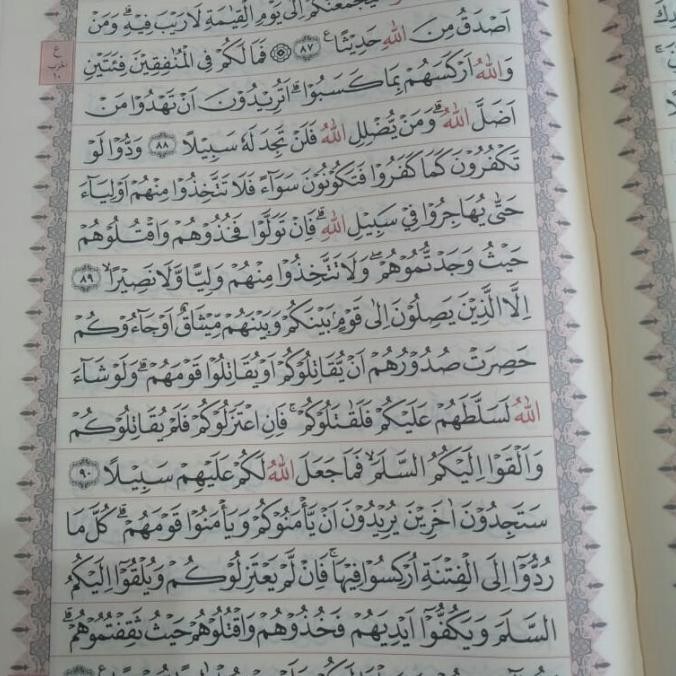 لَيَجْمَعَنَّكُمْ اِلٰى يَوْمِ الْقِيٰمَةِ لَا رَيْبَ فِيْهِ ۗ وَمَنْ
اَصْدَقُ مِنَ اللّٰهِ حَدِيْثًا ࣖ ٨٧ ۞ فَمَا لَكُمْ فِى الْمُنٰفِقِيْنَ فِئَتَيْنِ
وَاللّٰهُ اَرْكَسَهُمْ بِمَا كَسَبُوْا ۗ اَتُرِيْدُوْنَ اَنْ تَهْدُوْا مَنْ
اَضَلَّ اللّٰهُ ۗ وَمَنْ يُّضْلِلِ اللّٰهُ فَلَنْ تَجِدَ لَهٗ سَبِيْلًا ٨٨ وَدُّوْا لَوْ
تَكْفُرُوْنَ كَمَا كَفَرُوْا فَتَكُوْنُوْنَ سَوَاۤءً فَلَا تَتَّخِذُوْا مِنْهُمْ اَوْلِيَاۤءَ
حَتّٰى يُهَاجِرُوْا فِيْ سَبِيْلِ اللّٰهِ ۗ فَاِنْ تَوَلَّوْا فَخُذُوْهُمْ وَاقْتُلُوْهُمْ
حَيْثُ وَجَدْتُّمُوْهُمْ ۖ وَلَا تَتَّخِذُوْا مِنْهُمْ وَلِيًّا وَّلَا نَصِيْرًا ۙ ٨٩
اِلَّا الَّذِيْنَ يَصِلُوْنَ اِلٰى قَوْمٍۢ بَيْنَكُمْ وَبَيْنَهُمْ مِّيْثَاقٌ اَوْ جَاۤءُوْكُمْ
حَصِرَتْ صُدُوْرُهُمْ اَنْ يُّقَاتِلُوْكُمْ اَوْ يُقَاتِلُوْا قَوْمَهُمْ ۗ وَلَوْ شَاۤءَ
اللّٰهُ لَسَلَّطَهُمْ عَلَيْكُمْ فَلَقٰتَلُوْكُمْ ۚ فَاِنِ اعْتَزَلُوْكُمْ فَلَمْ يُقَاتِلُوْكُمْ
وَاَلْقَوْا اِلَيْكُمُ السَّلَمَ ۙ فَمَا جَعَلَ اللّٰهُ لَكُمْ عَلَيْهِمْ سَبِيْلًا ٩٠
سَتَجِدُوْنَ اٰخَرِيْنَ يُرِيْدُوْنَ اَنْ يَّأْمَنُوْكُمْ وَيَأْمَنُوْا قَوْمَهُمْ ۗ كُلَّ مَا
رُدُّوْٓا اِلَى الْفِتْنَةِ اُرْكِسُوْا فِيْهَا ۚ فَاِنْ لَّمْ يَعْتَزِلُوْكُمْ وَيُلْقُوْٓا اِلَيْكُمُ
السَّلَمَ وَيَكُفُّوْٓا اَيْدِيَهُمْ فَخُذُوْهُمْ وَاقْتُلُوْهُمْ حَيْثُ ثَقِفْتُمُوْهُمْ ۗ